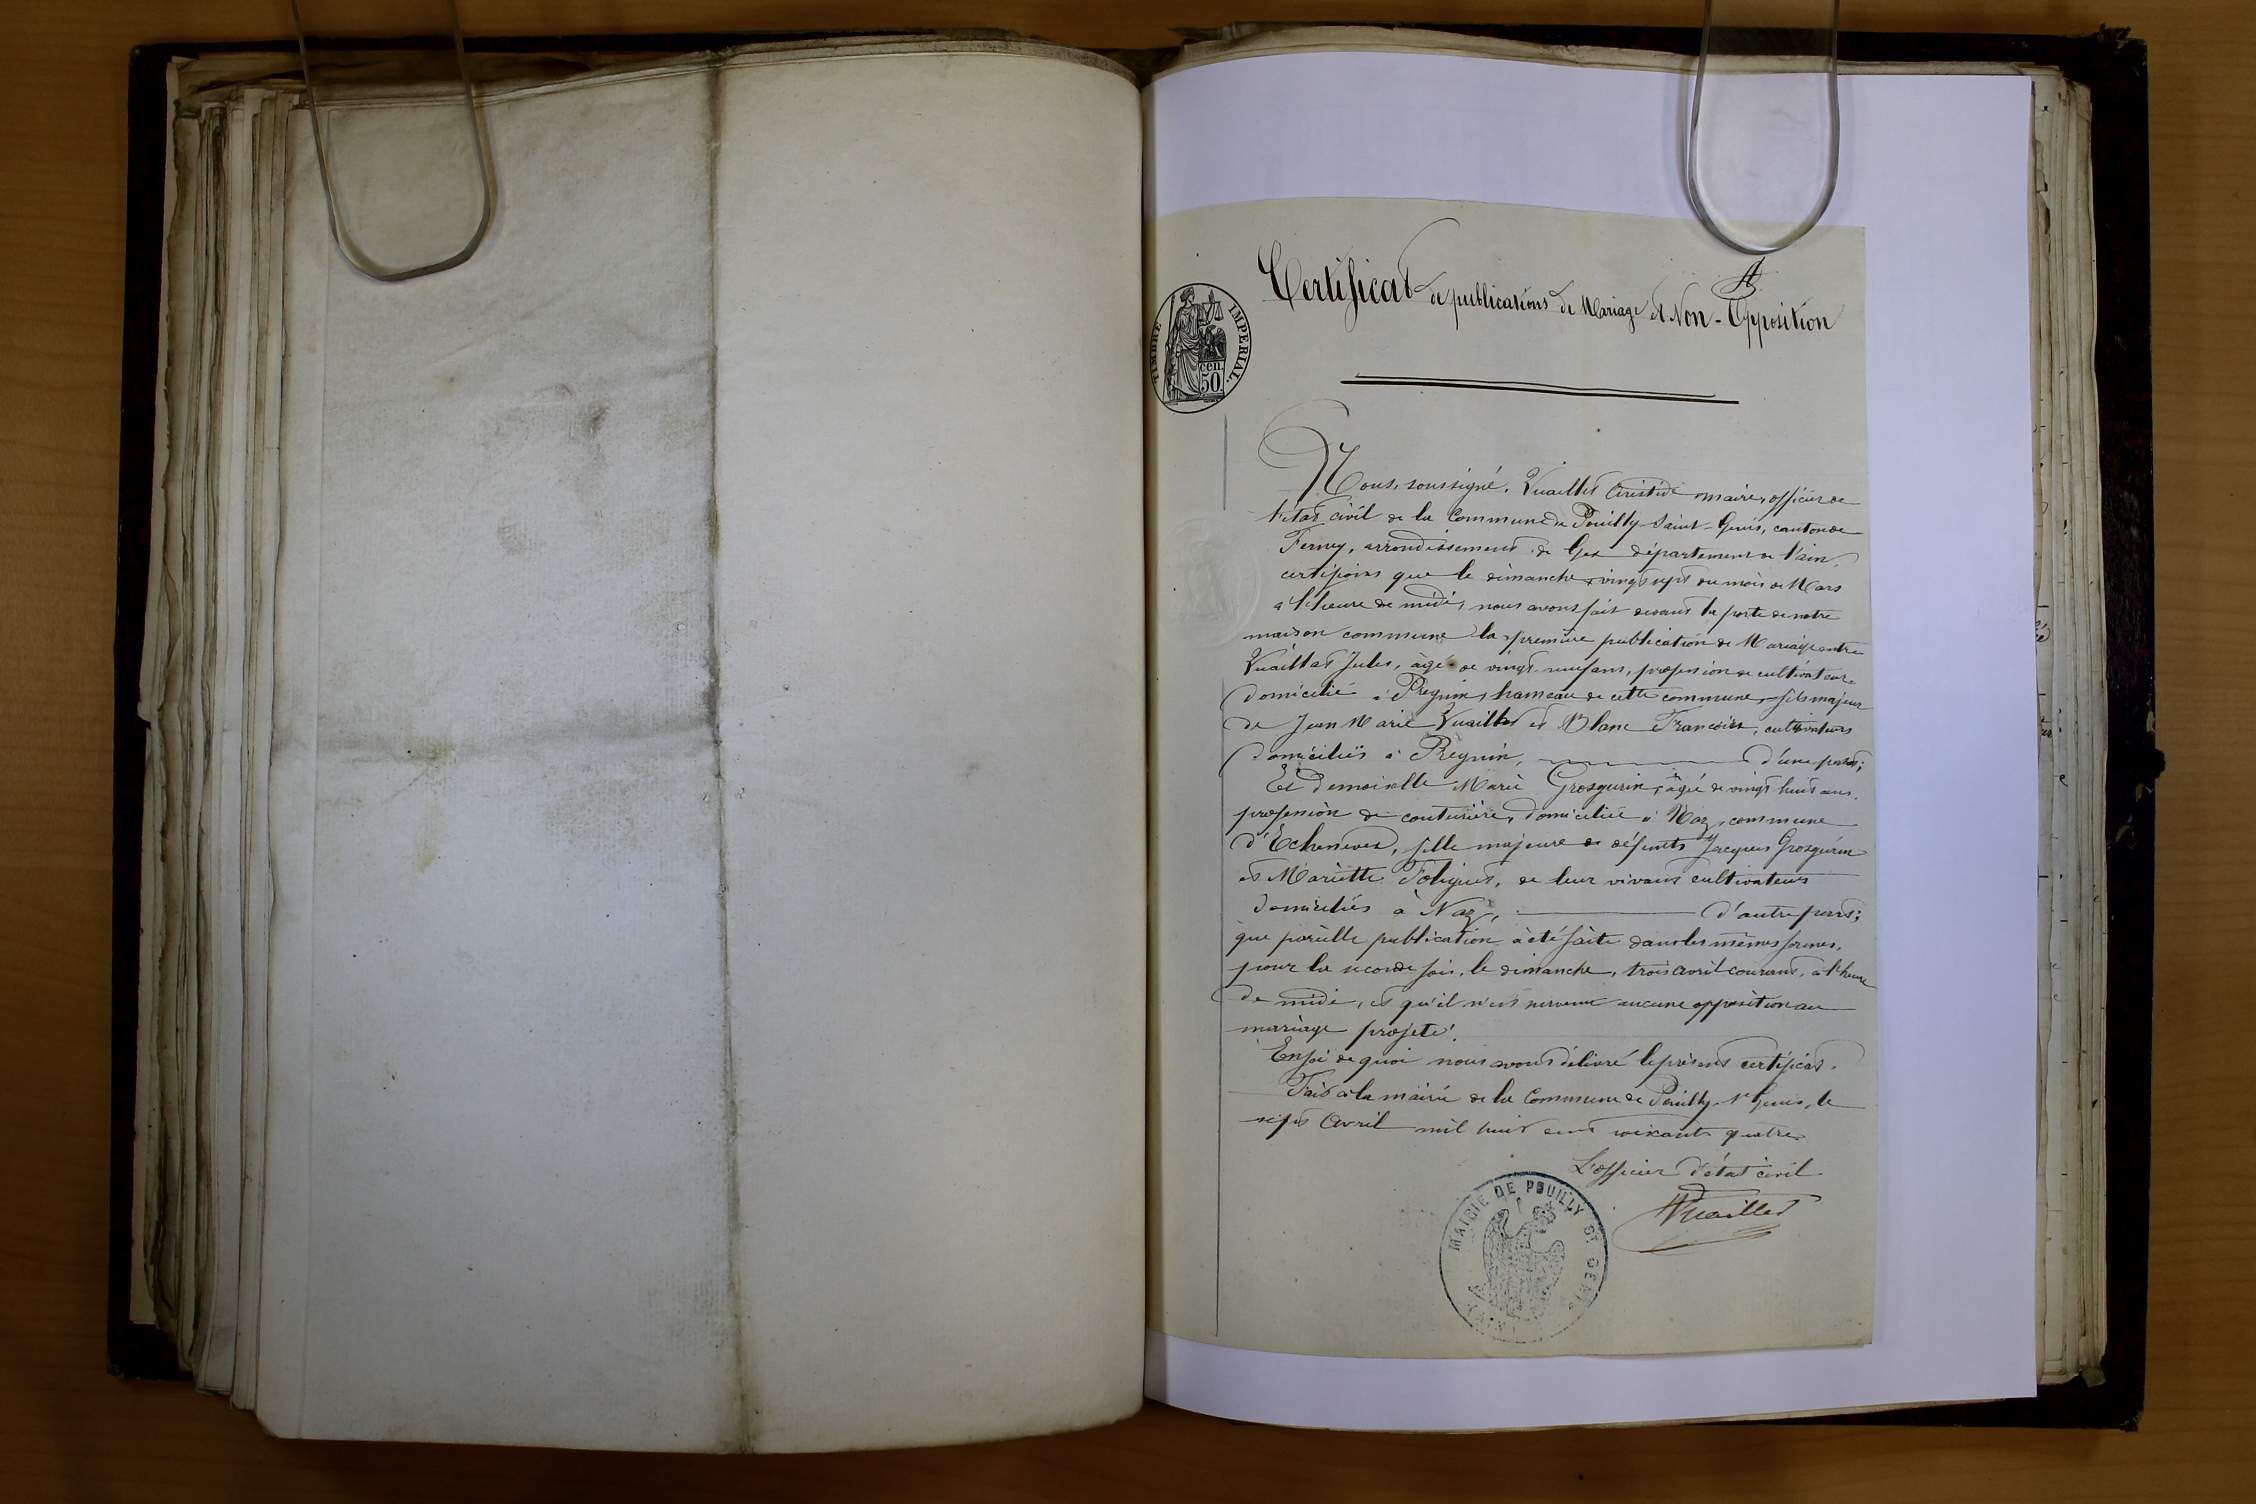 A
Certificat de publications de Mariage et Non-Opposition
TIMBRE IMPERIAL.
cen. 50.
Nous, soussigné, Vuaillet Aristide maire, officier de
l'état civil de la Commune de Pouilly-Saint-Genis, canton de
Ferney, arrondissement de Gex département de l'ain,
certifions que le dimanche vingt sept du mois de Mars
à l'heure de midi, nous avons fait devant la porte de notre
maison commune la première publication de Mariage entre
Vuaillet Jules, âgé de vingt-neuf ans, profession de cultivateur
domicilié à Pregnin, hameau de cette commune, fils majeur
de Jean Marie Vuaillet et Blanc Françoise, cultivateurs
domiciliés à Pregnin, d'une part;
Et Demoiselle Marie Grosgurin, âgée de vingt huit ans,
profession de couturière, domiciliée à Naz, commune
d'Echenevex, fille majeure de défunts Jacques Grosgurin
et Mariette Foliguet, de leur vivant cultivateurs
domiciliés à Naz, d'autre part;
que pareille publication à été faite dans les mêmes formes,
pour la seconde fois, le dimanche, trois avril courant, à l'heure
de midi, et qu'il n'est survenu aucune opposition au
mariage projeté.
En foi de quoi nous avons délivré le présent certificat.
Fait à la mairie de la Commune de Pouilly St Genis, le
sept Avril mil huit cent soixante quatre
L'officier d'état civil.
AVuaillet
MAIRIE DE POUILLY ST. GENIS
(AIN)